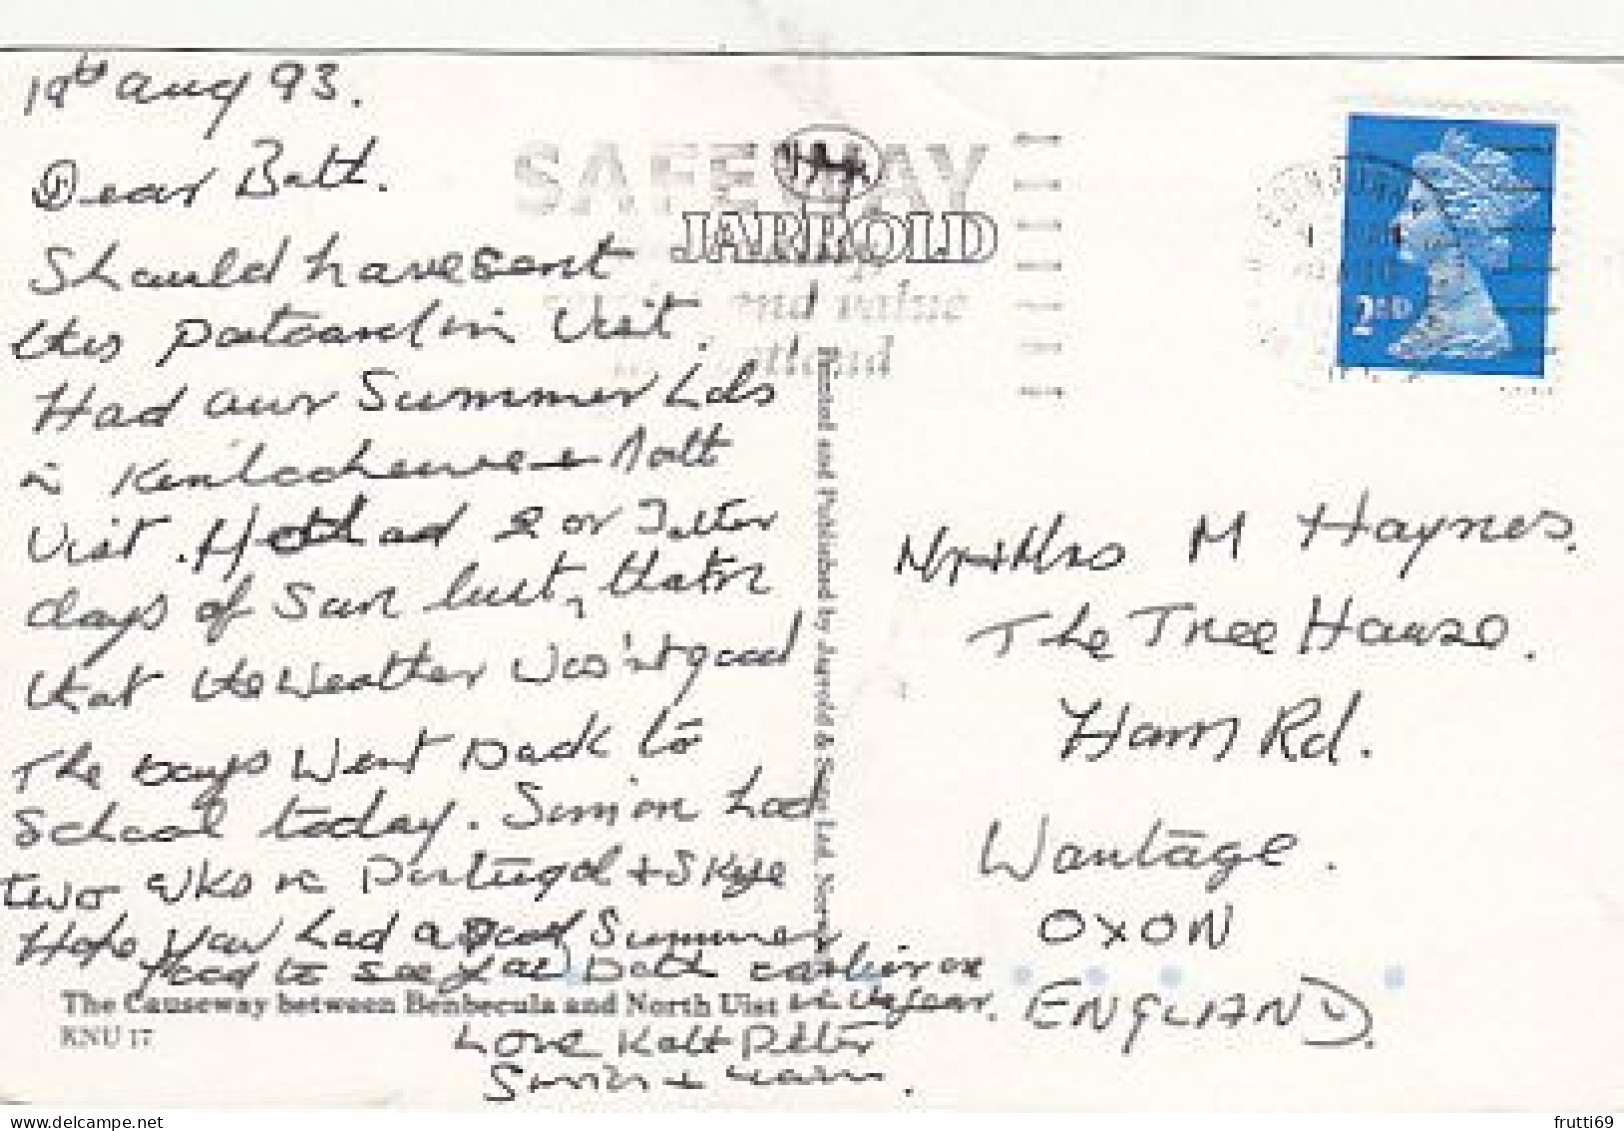 19th Aug 93.
Dear Both.
Should have sent
this postcard in Uist.
Had our Summer hols
in Kinlochewe + North
Uist. Had 2 or 3 other
days of Sun but, that
that the Weather Was'nt good
The boys Went back to
School today. Simon had
two wks in Portugal + Skye
Hope you had a good Summer
good to see you both earlier on
in the year.
Love Peter
Simon +
The Causeway between Benbecula and North Uist
KNU 17
SAFEWAY
JARROLD
and value
Printed and Published by Jarrold & Sons Ltd, Norwich
2ND
Mr + Mrs M Haynes.
The Tree House.
Ham Rd.
Wantage.
OXON
ENGLAND.
frutti69